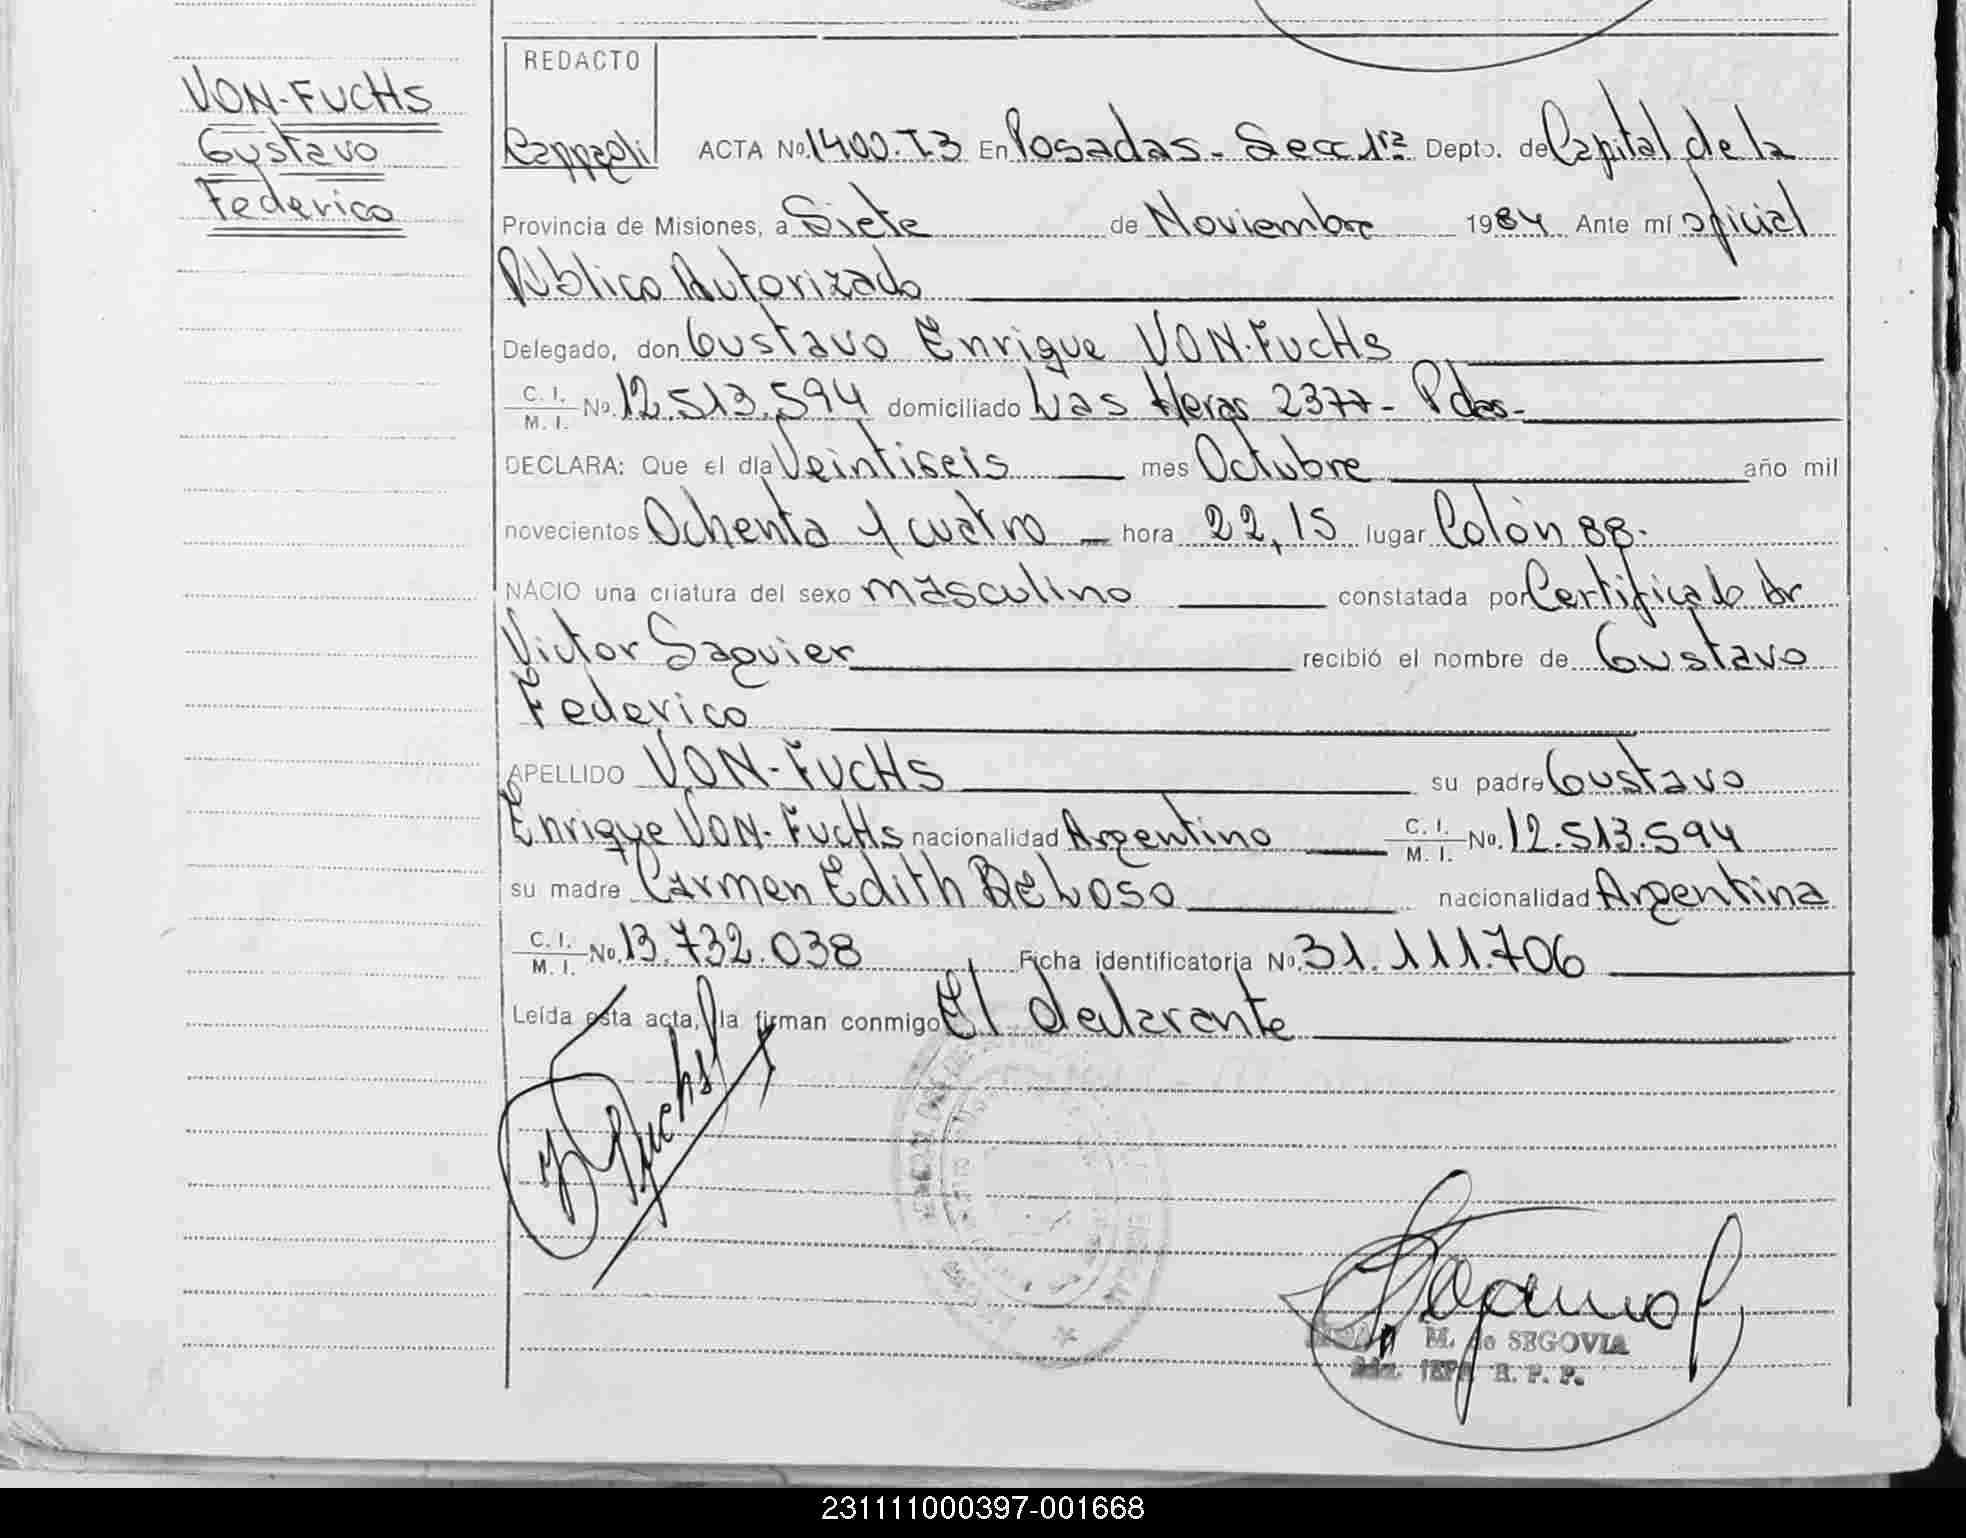 VON-FUCHS
Gustavo
Federico
REDACTO
ACTA No. 1400.T.3 En Posadas - Secc 1ra Depto. de Capital de la
Provincia de Misiones, a Siete de Noviembre 1984 Ante mí oficial
Público Autorizado
Delegado, don Gustavo Enrique VON-FUCHS
C. I. / M. I. No. 12.513.594 domiciliado Las Heras 2377 - Pdas-
DECLARA: Que el día Veintiseis mes Octubre año mil
novecientos Ochenta y cuatro hora 22,15 lugar Colón 88.
NACIO una criatura del sexo masculino constatada por Certificado dr
Victor Saguier recibió el nombre de Gustavo
Federico
APELLIDO VON-FUCHS su padre Gustavo
Enrique VON-FUCHS nacionalidad Argentino C. I. / M. I. No. 12.513.594
su madre Carmen Edith BELOSO nacionalidad Argentina
C. I. / M. I. No. 13.732.038 Ficha identificatoria No. 31.111.706
Leída esta acta, la firman conmigo El declarante
Fuchs
M. de SEGOVIA
R. P. P.
231111000397-001668